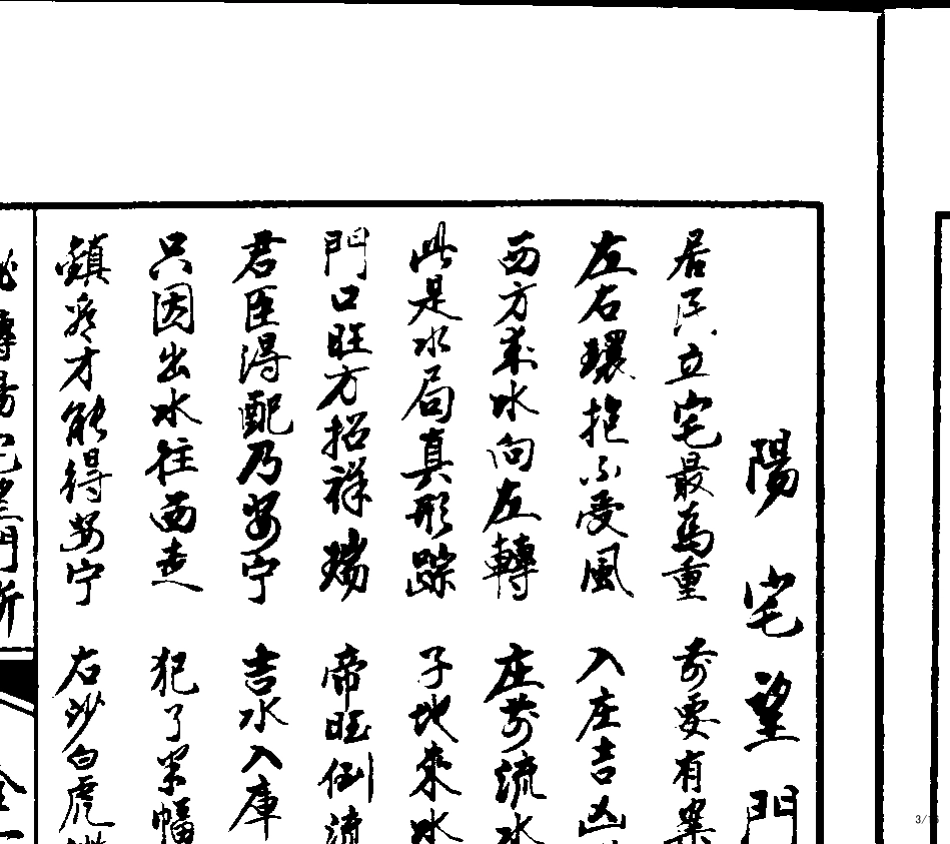 陽宅望門
居民立宅最為重 前要有案
左右環抱不受風 入庄吉凶
西方來水向左轉 庄前流水
此是水局真形踪 子地來水
門口旺方招祥瑞 帝旺倒流
君臣得配乃安宁 吉水入庫
只因出水往西走 犯了
鎮 才能得安宁 右沙白虎
3/